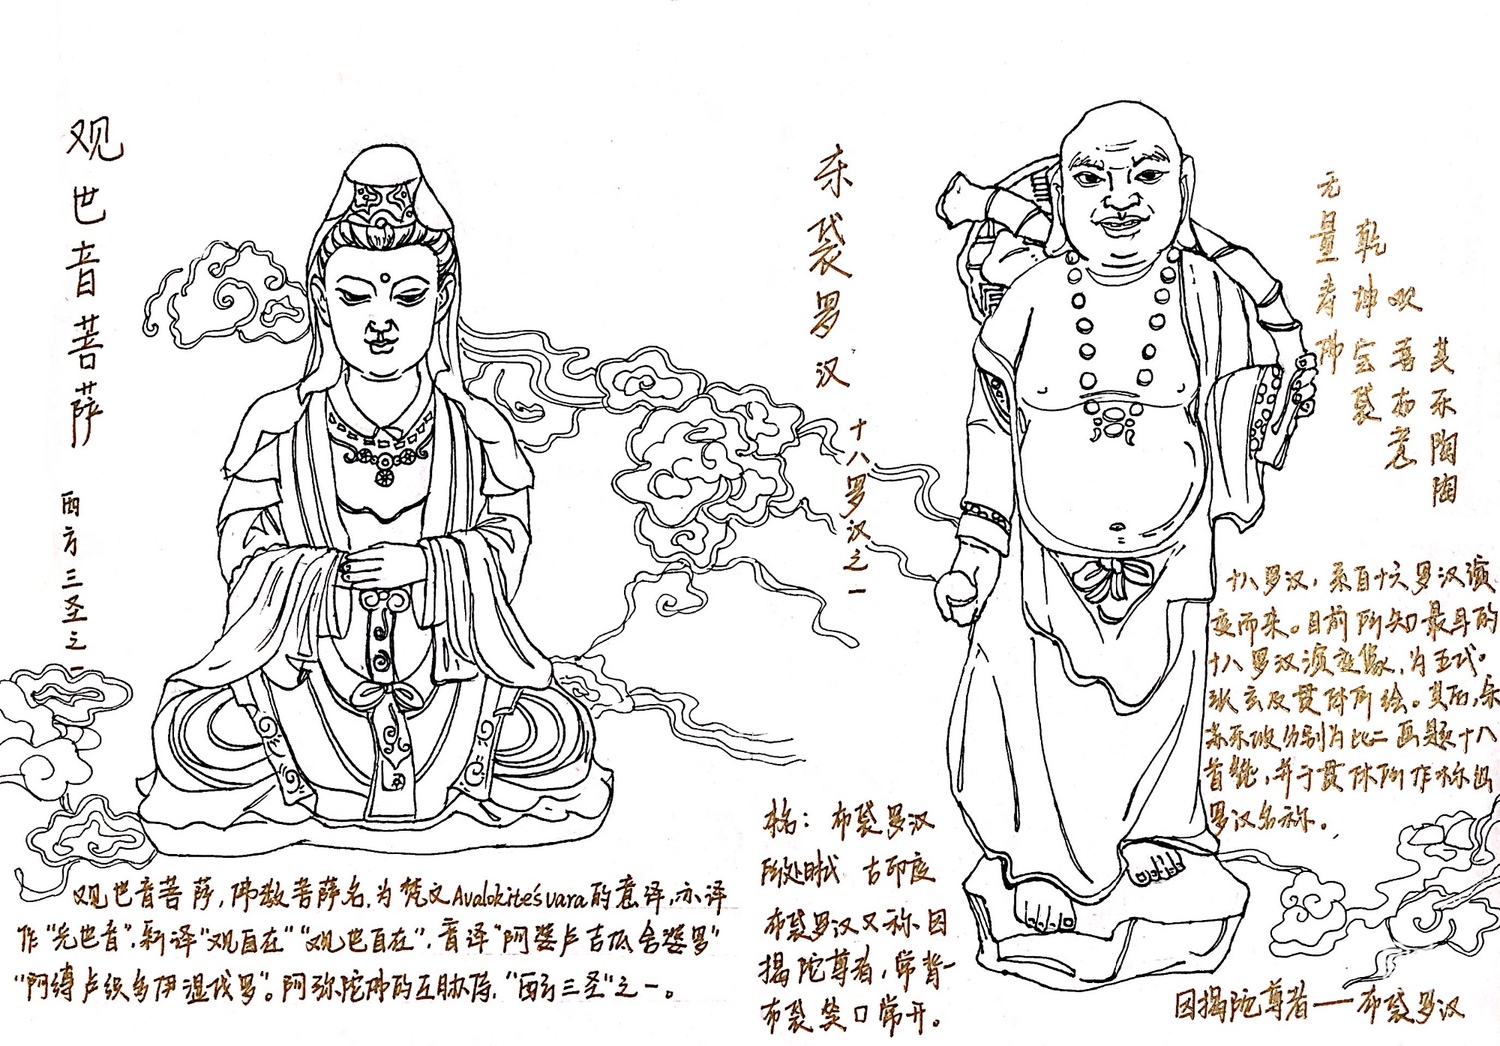 观世音菩萨
西方三圣之一
观世音菩萨，佛教菩萨名，为梵文Avalokiteśvara的意译，亦译
作"光世音"，新译"观自在""观世自在"，音译"阿婆卢吉低舍婆罗"
"阿缚卢织多伊湿伐罗"。阿弥陀佛的左胁侍，"西方三圣"之一。
布袋罗汉
十八罗汉之一
无量寿佛
乾坤宝袋
欢喜如意
其乐陶陶
十八罗汉，系自十六罗汉演
变而来。目前所知最早的
十八罗汉演变像，为五代·
张玄及贯休所绘。其后，宋
苏东坡分别为此二画题十八
首赞，并于贯休所作标出
罗汉名称。
本名：布袋罗汉
所处时代 古印度
布袋罗汉又称因
揭陀尊者，常背一
布袋笑口常开。
因揭陀尊者——布袋罗汉